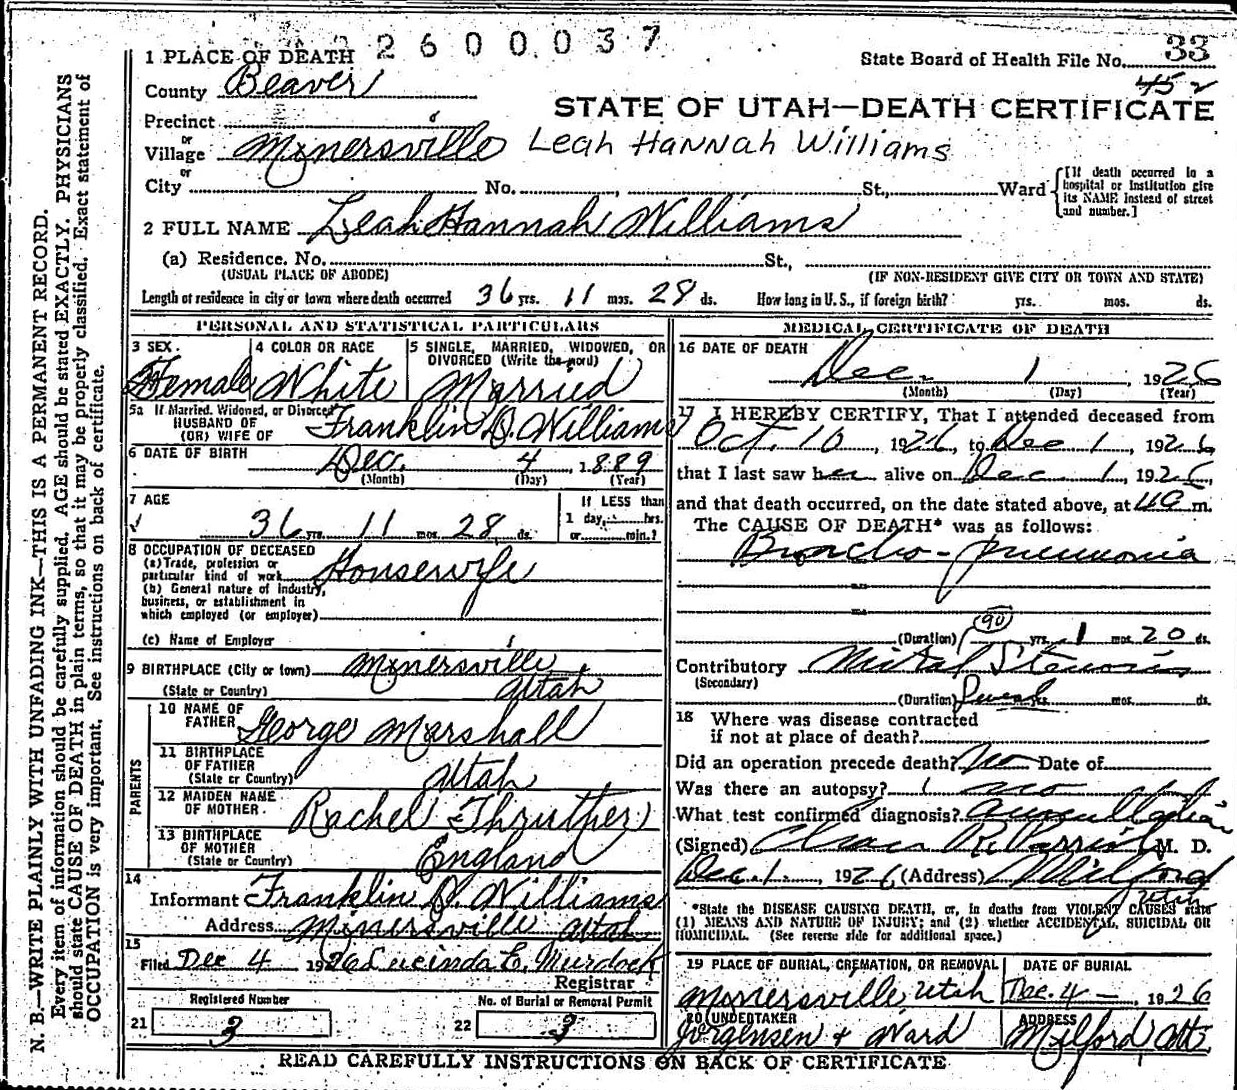 2600037
1 PLACE OF DEATH
State Board of Health File No. 33
452
County Beaver
STATE OF UTAH—DEATH CERTIFICATE
Precinct
or
Village Minersville Leah Hannah Williams
or
City No. , St., Ward [If death occurred in a hospital or institution give its NAME instead of street and number.]
2 FULL NAME Leah Hannah Williams
(a) Residence. No. St.,
(USUAL PLACE OF ABODE) (IF NON-RESIDENT GIVE CITY OR TOWN AND STATE)
Length of residence in city or town where death occurred 36 yrs. 11 mos. 28 ds. How long in U. S., if foreign birth? yrs. mos. ds.
PERSONAL AND STATISTICAL PARTICULARS
3 SEX. 4 COLOR OR RACE 5 SINGLE, MARRIED, WIDOWED, OR DIVORCED (Write the word)
Female White Married
5a If Married, Widowed, or Divorced
HUSBAND OF
(OR) WIFE OF Franklin D. Williams
6 DATE OF BIRTH Dec. 4, 1889
(Month) (Day) (Year)
7 AGE If LESS than
36 yrs. 11 mos. 28 ds. 1 day, hrs.
or min.?
8 OCCUPATION OF DECEASED
(a) Trade, profession or
particular kind of work Housewife
(b) General nature of industry,
business, or establishment in
which employed (or employer)
(c) Name of Employer
9 BIRTHPLACE (City or town) Minersville
(State or Country) Utah
PARENTS
10 NAME OF
FATHER George Marshall
11 BIRTHPLACE
OF FATHER
(State or Country) Utah
12 MAIDEN NAME
OF MOTHER. Rachel Thruther
13 BIRTHPLACE
OF MOTHER
(State or Country) England
14
Informant Franklin D. Williams
Address Minersville Utah
15
Filed Dec 4 1926 Lucinda E. Murdock
Registrar
Registered Number No. of Burial or Removal Permit
21 3 22 3
MEDICAL CERTIFICATE OF DEATH
16 DATE OF DEATH
Dec. 1, 1926
(Month) (Day) (Year)
17 I HEREBY CERTIFY, That I attended deceased from
Oct. 10, 1926, to Dec 1, 1926
that I last saw her alive on Dec 1, 1926,
and that death occurred, on the date stated above, at m.
The CAUSE OF DEATH* was as follows:
Broncho-pneumonia
90
(Duration) yrs. 1 mos. 20 ds.
Contributory Mitral Stenosis
(Secondary)
(Duration) yrs. mos. ds.
18 Where was disease contracted
if not at place of death?
Did an operation precede death? No Date of
Was there an autopsy? no
What test confirmed diagnosis? auscultation
(Signed) M. D.
Dec. 1, 1926 (Address) Milford
Utah
*State the DISEASE CAUSING DEATH, or, in deaths from VIOLENT CAUSES state
(1) MEANS AND NATURE OF INJURY; and (2) whether ACCIDENTAL, SUICIDAL OR
HOMICIDAL. (See reverse side for additional space.)
19 PLACE OF BURIAL, CREMATION, OR REMOVAL DATE OF BURIAL
Minersville, Utah Dec. 4 - , 1926
20 UNDERTAKER ADDRESS
Jorgensen + Ward Milford, Utt.
READ CAREFULLY INSTRUCTIONS ON BACK OF CERTIFICATE
N. B.—WRITE PLAINLY WITH UNFADING INK—THIS IS A PERMANENT RECORD.
Every item of information should be carefully supplied. AGE should be stated EXACTLY. PHYSICIANS
should state CAUSE OF DEATH in plain terms, so that it may be properly classified. Exact statement of
OCCUPATION is very important. See instructions on back of certificate.